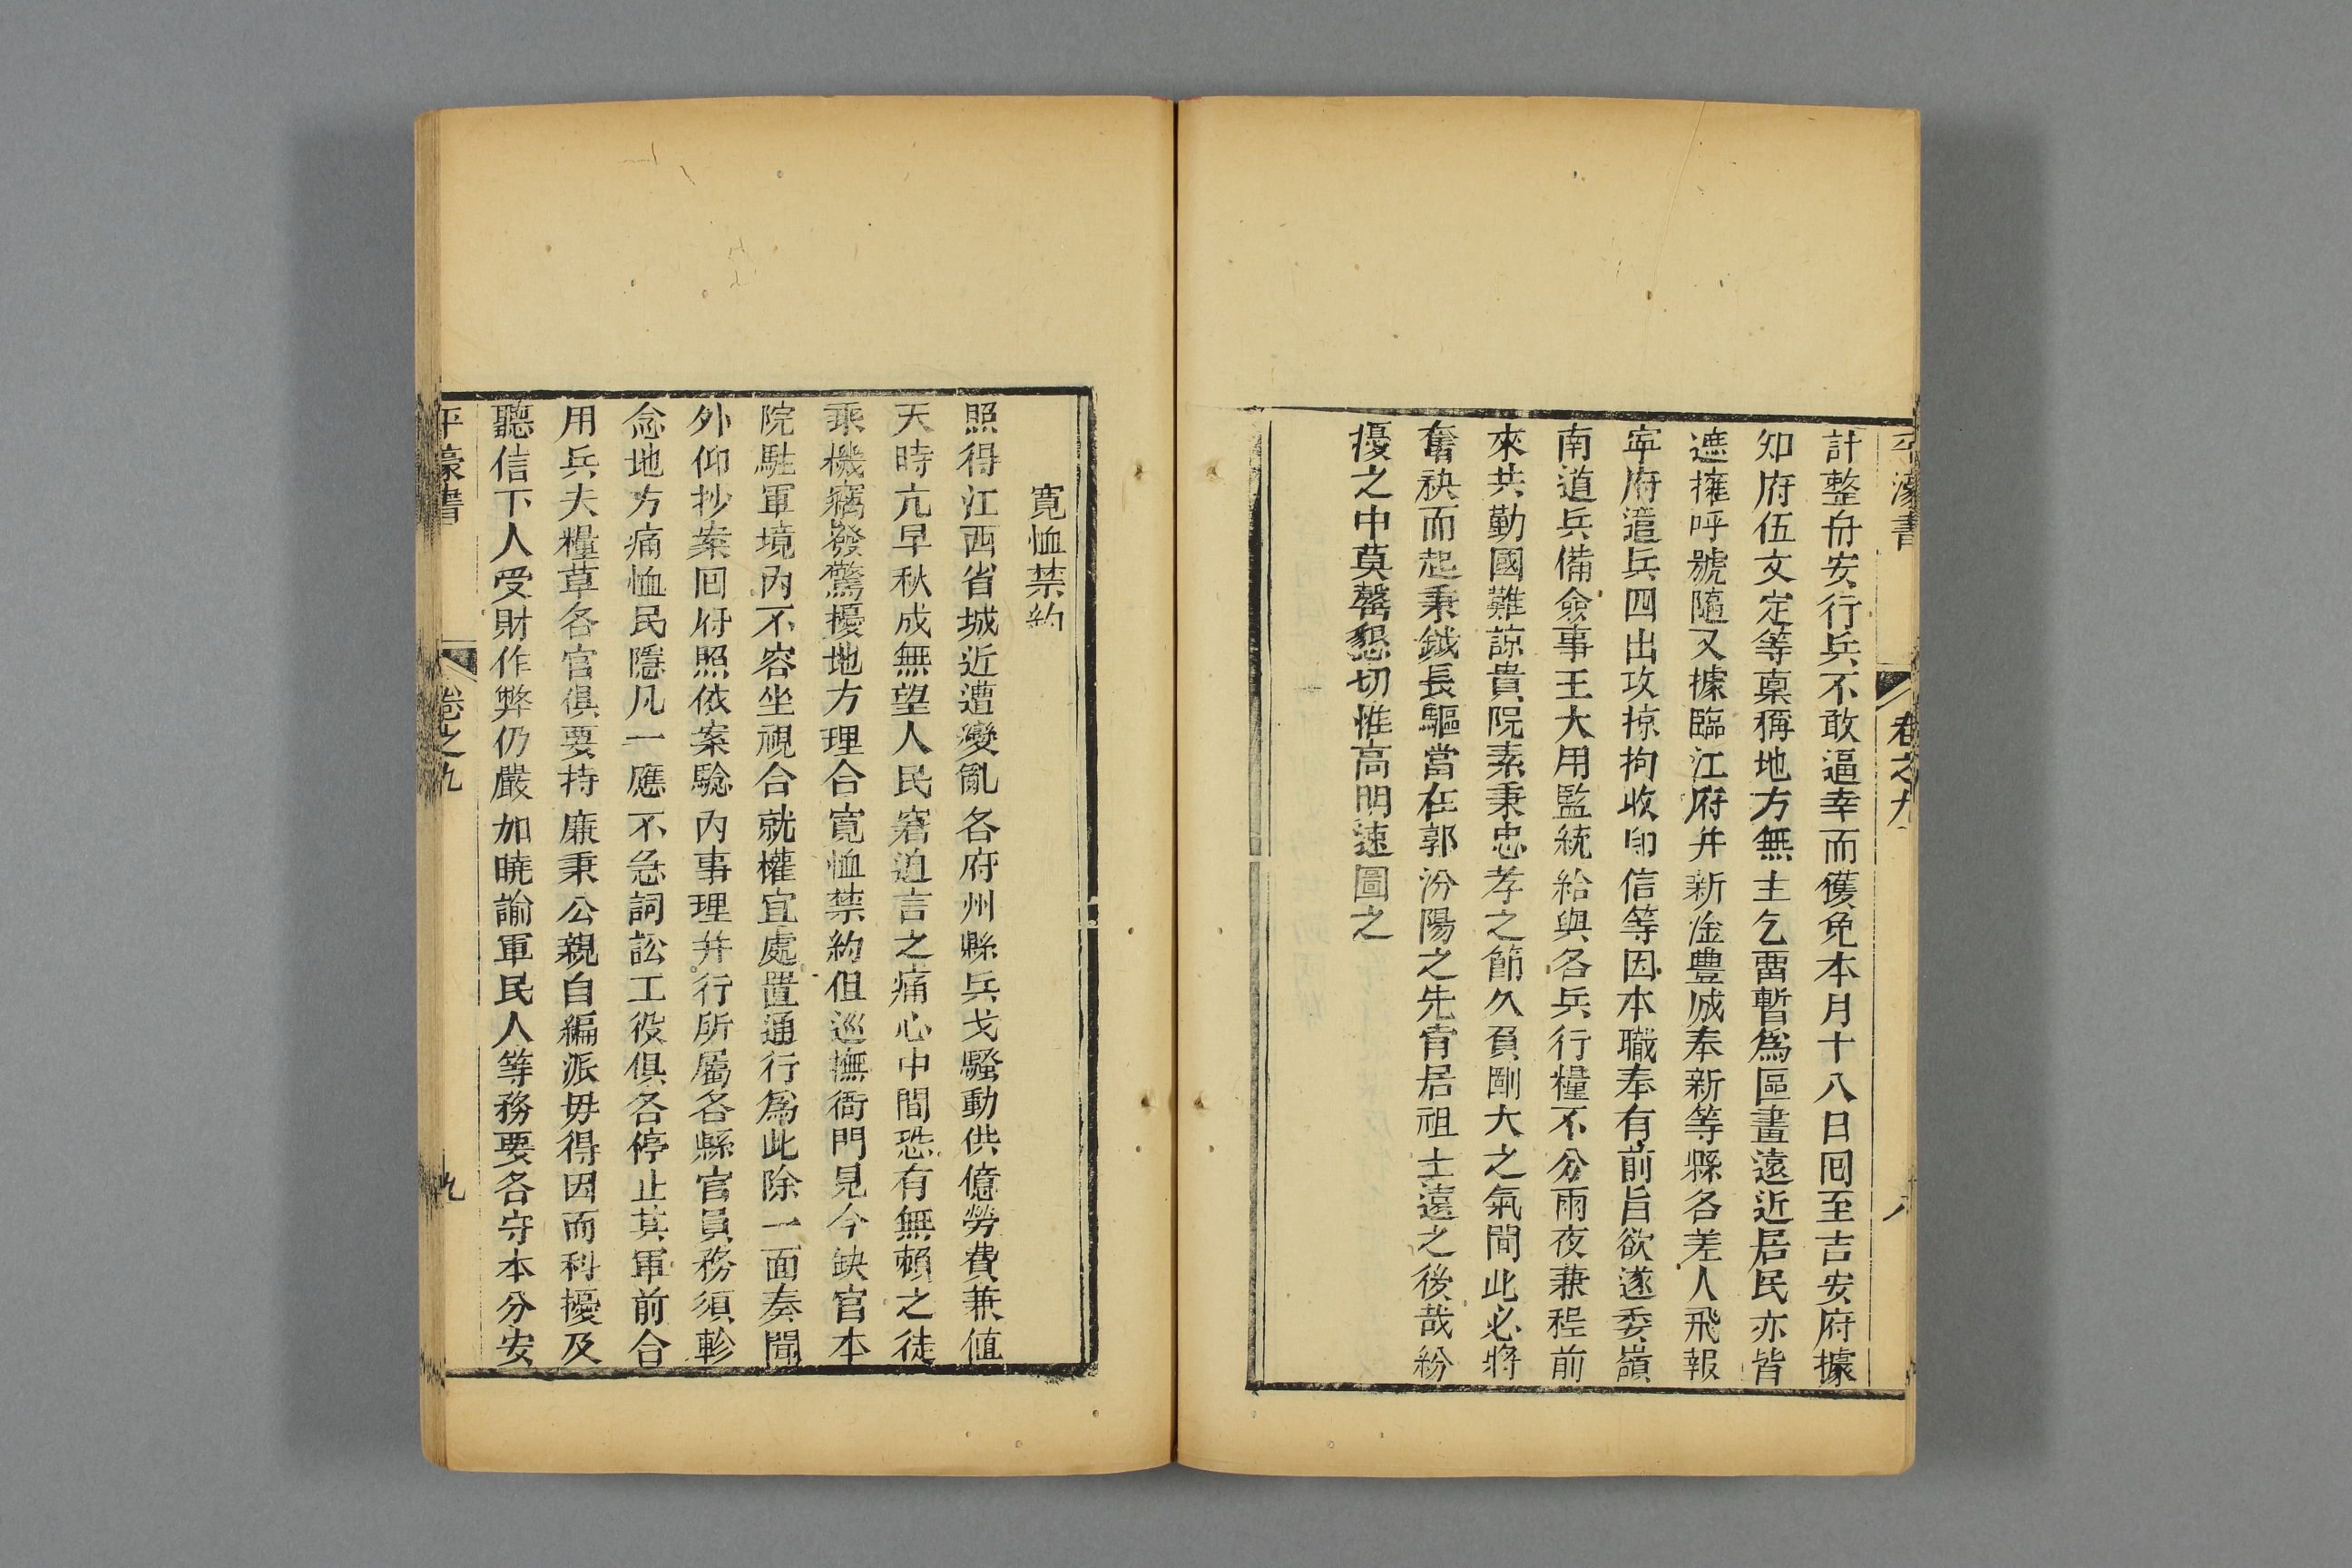 平濠書
卷之九
八
計整舟安行兵不敢逼幸而獲免本月十八日囘至吉安府據
知府伍文定等稟稱地方無主乞畱暫爲區畫遠近居民亦皆
遮擁呼號隨又據臨江府并新淦豐城奉新等縣各差人飛報
寧府遣兵四出攻掠拘收印信等因本職奉有前旨欲遂委嶺
南道兵備僉事王大用監統給與各兵行糧不分雨夜兼程前
來共勤國難諒貴院素秉忠孝之節久負剛大之氣聞此必將
奮袂而起秉鉞長驅當在郭汾陽之先肯居祖士遠之後哉紛
擾之中莫罄懇切惟高明速圖之
寬恤禁約
照得江西省城近遭變亂各府州縣兵戈騷動供億勞費兼値
天時亢旱秋成無望人民窘迫言之痛心中間恐有無賴之徒
乘機竊發驚擾地方理合寬恤禁約但巡撫衙門見今缺官本
院駐軍境內不容坐視合就權宜處置通行爲此除一面奏聞
外仰抄案囘府照依案驗內事理并行所屬各縣官員務須軫
念地方痛恤民隱凡一應不急詞訟工役俱各停止其軍前合
用兵夫糧草各官俱要持廉秉公親自編派毋得因而科擾及
聽信下人受財作弊仍嚴加曉諭軍民人等務要各守本分安
平濠書
卷之九
九